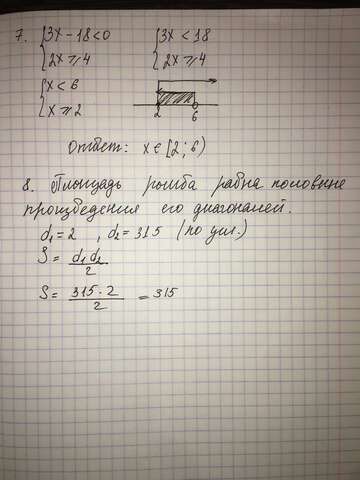 7. { 3x - 18 < 0 { 3x < 18
{ 2x ⩾ 4 { 2x ⩾ 4
{ x < 6
{ x ⩾ 2
2 6
Ответ: x ∈ [2; 6)
8. Площадь ромба равна половине
произведения его диагоналей.
d₁ = 2 , d₂ = 315 (по усл.)
S = d₁d₂ / 2
S = 315 · 2 / 2 = 315